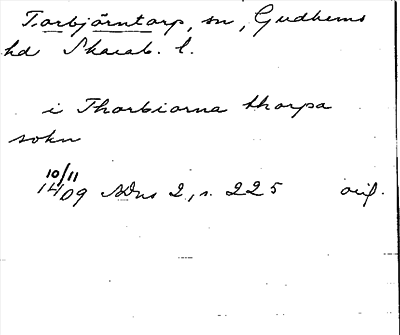 Torbjörntorp, sn, Gudhems
hd Skarab. l.
i Thorbiorna thorpa
sokn
10/11
1409 SDns 2, s. 225 orig.